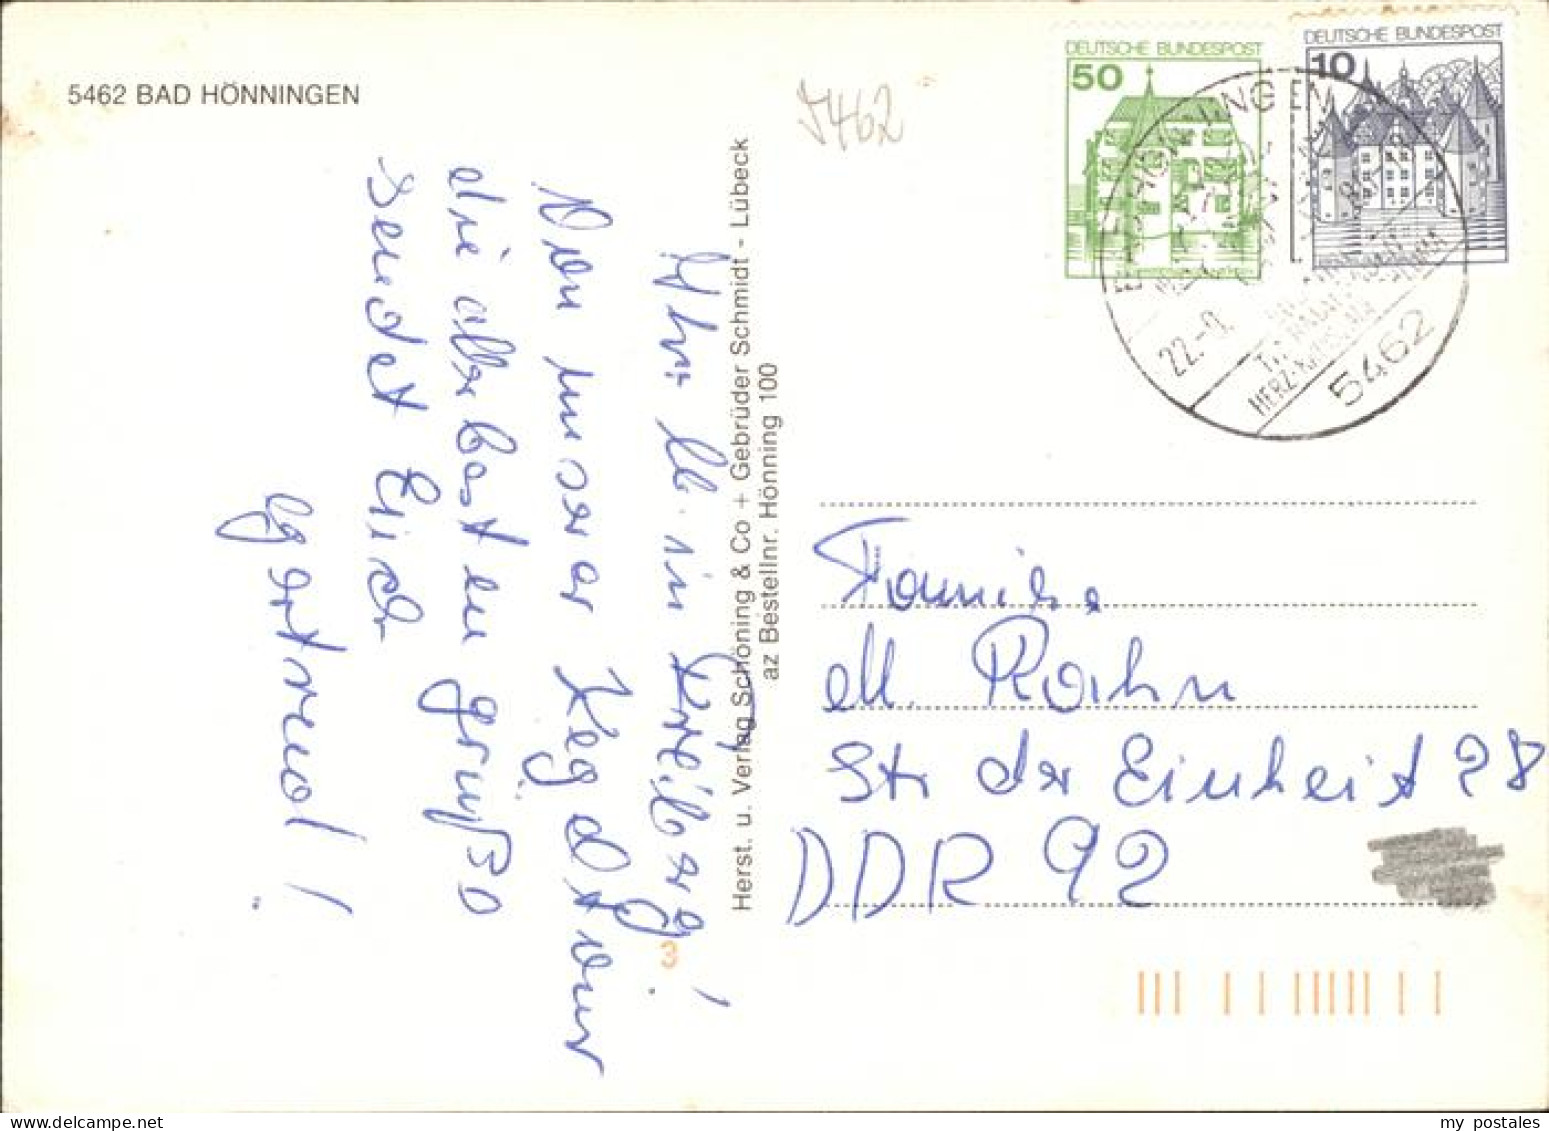 5462 BAD HÖNNINGEN
5462
DEUTSCHE BUNDESPOST
50
DEUTSCHE BUNDESPOST
10
22.-9.
5462
Ihr lb. in Freiberg!
Von unserer Kegeltour
die allerbesten Grüße
sendet Euch
Gertrud!
Herst. u. Verlag Schöning & Co + Gebrüder Schmidt - Lübeck
az Bestellnr. Hönning 100
Familie
M. Rahn
Str der Einheit 28
DDR 92
3
my postales